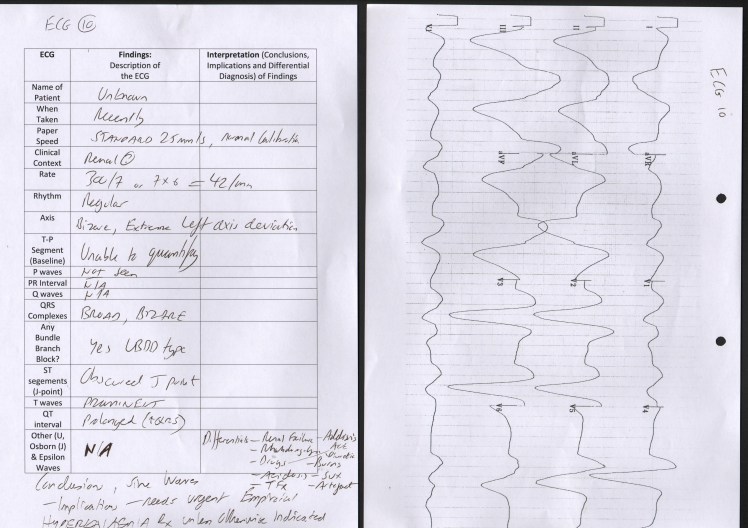 ECG 10
ECG
Findings:
Description of
the ECG
Interpretation (Conclusions,
Implications and Differential
Diagnosis) of Findings
Name of
Patient
Unknown
When
Taken
Recently
Paper
Speed
STANDARD 25mm/s, Normal Calibration
Clinical
Context
Renal
Rate
300/7 or 7x6 = 42/min
Rhythm
Regular
Axis
Bizarre, Extreme Left axis deviation
T-P
Segment
(Baseline)
Unable to quantify
P waves
NOT seen
PR Interval
N/A
Q waves
N/A
QRS
Complexes
BROAD, BIZARE
Any
Bundle
Branch
Block?
Yes LBBB type
ST
segements
(J-point)
Obscured J point
T waves
PROMINENT
QT
interval
Prolonged (↑QRS)
Other (U,
Osborn (J)
& Epsilon
Waves
N/A
Differentials - Renal Failure - Addisons
- Rhabdomyolysis
- Drugs
- Burns
- Acidosis - Sux
- TFx - Artefact
Conclusion, Sine Waves
- Implication - needs urgent Empirical
HYPERKALAEMIA Rx unless Otherwise Indicated
ECG 10
I
II
III
VI
aVR
aVL
aVF
V1
V2
V3
V4
V5
V6